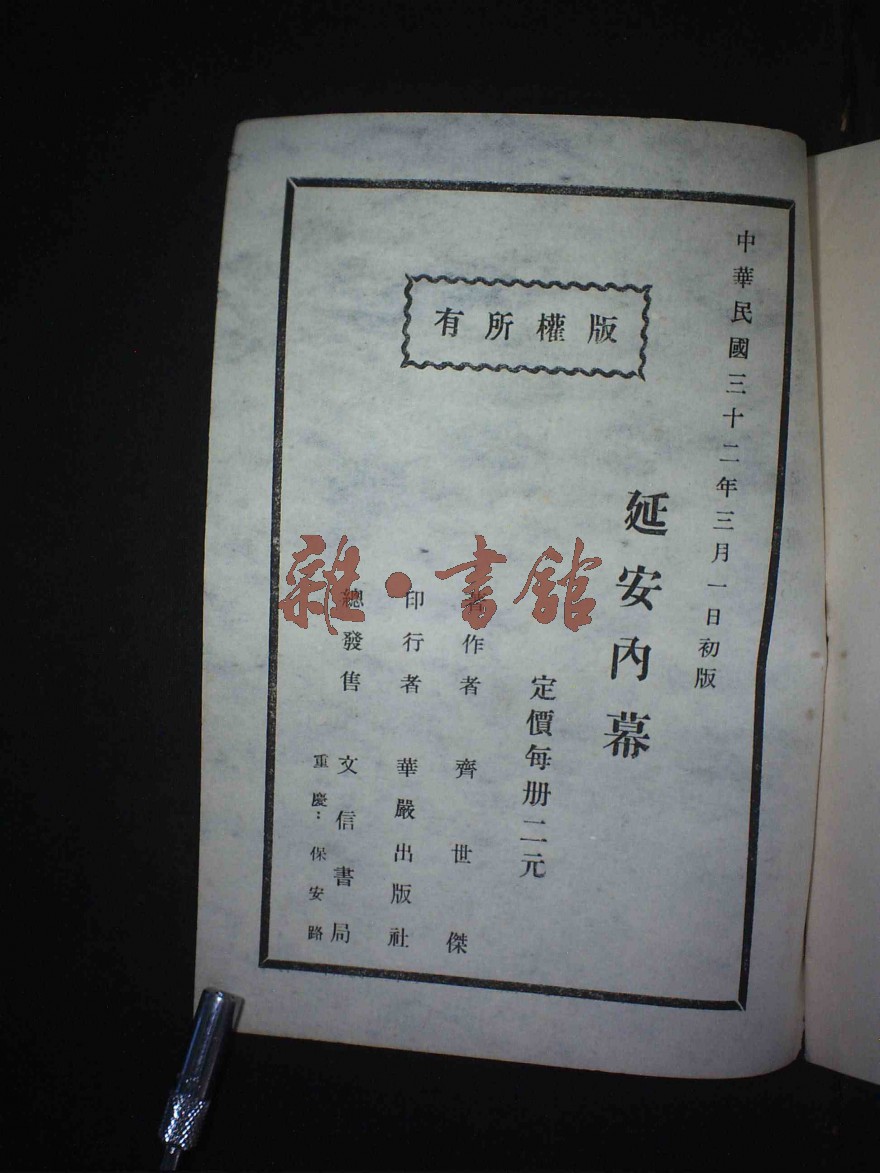 中華民國三十二年三月一日初版
版權所有
延安內幕
定價每册二元
著作者 齊世傑
印行者 華嚴出版社
總發售 文信書局
重慶：保安路
雜·書館